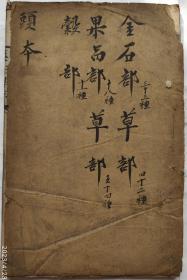 金石部 三十三種 草部 四十二種
果品部 十八種 草部 五十四種
穀部 十一種
頭本
2023/4/24